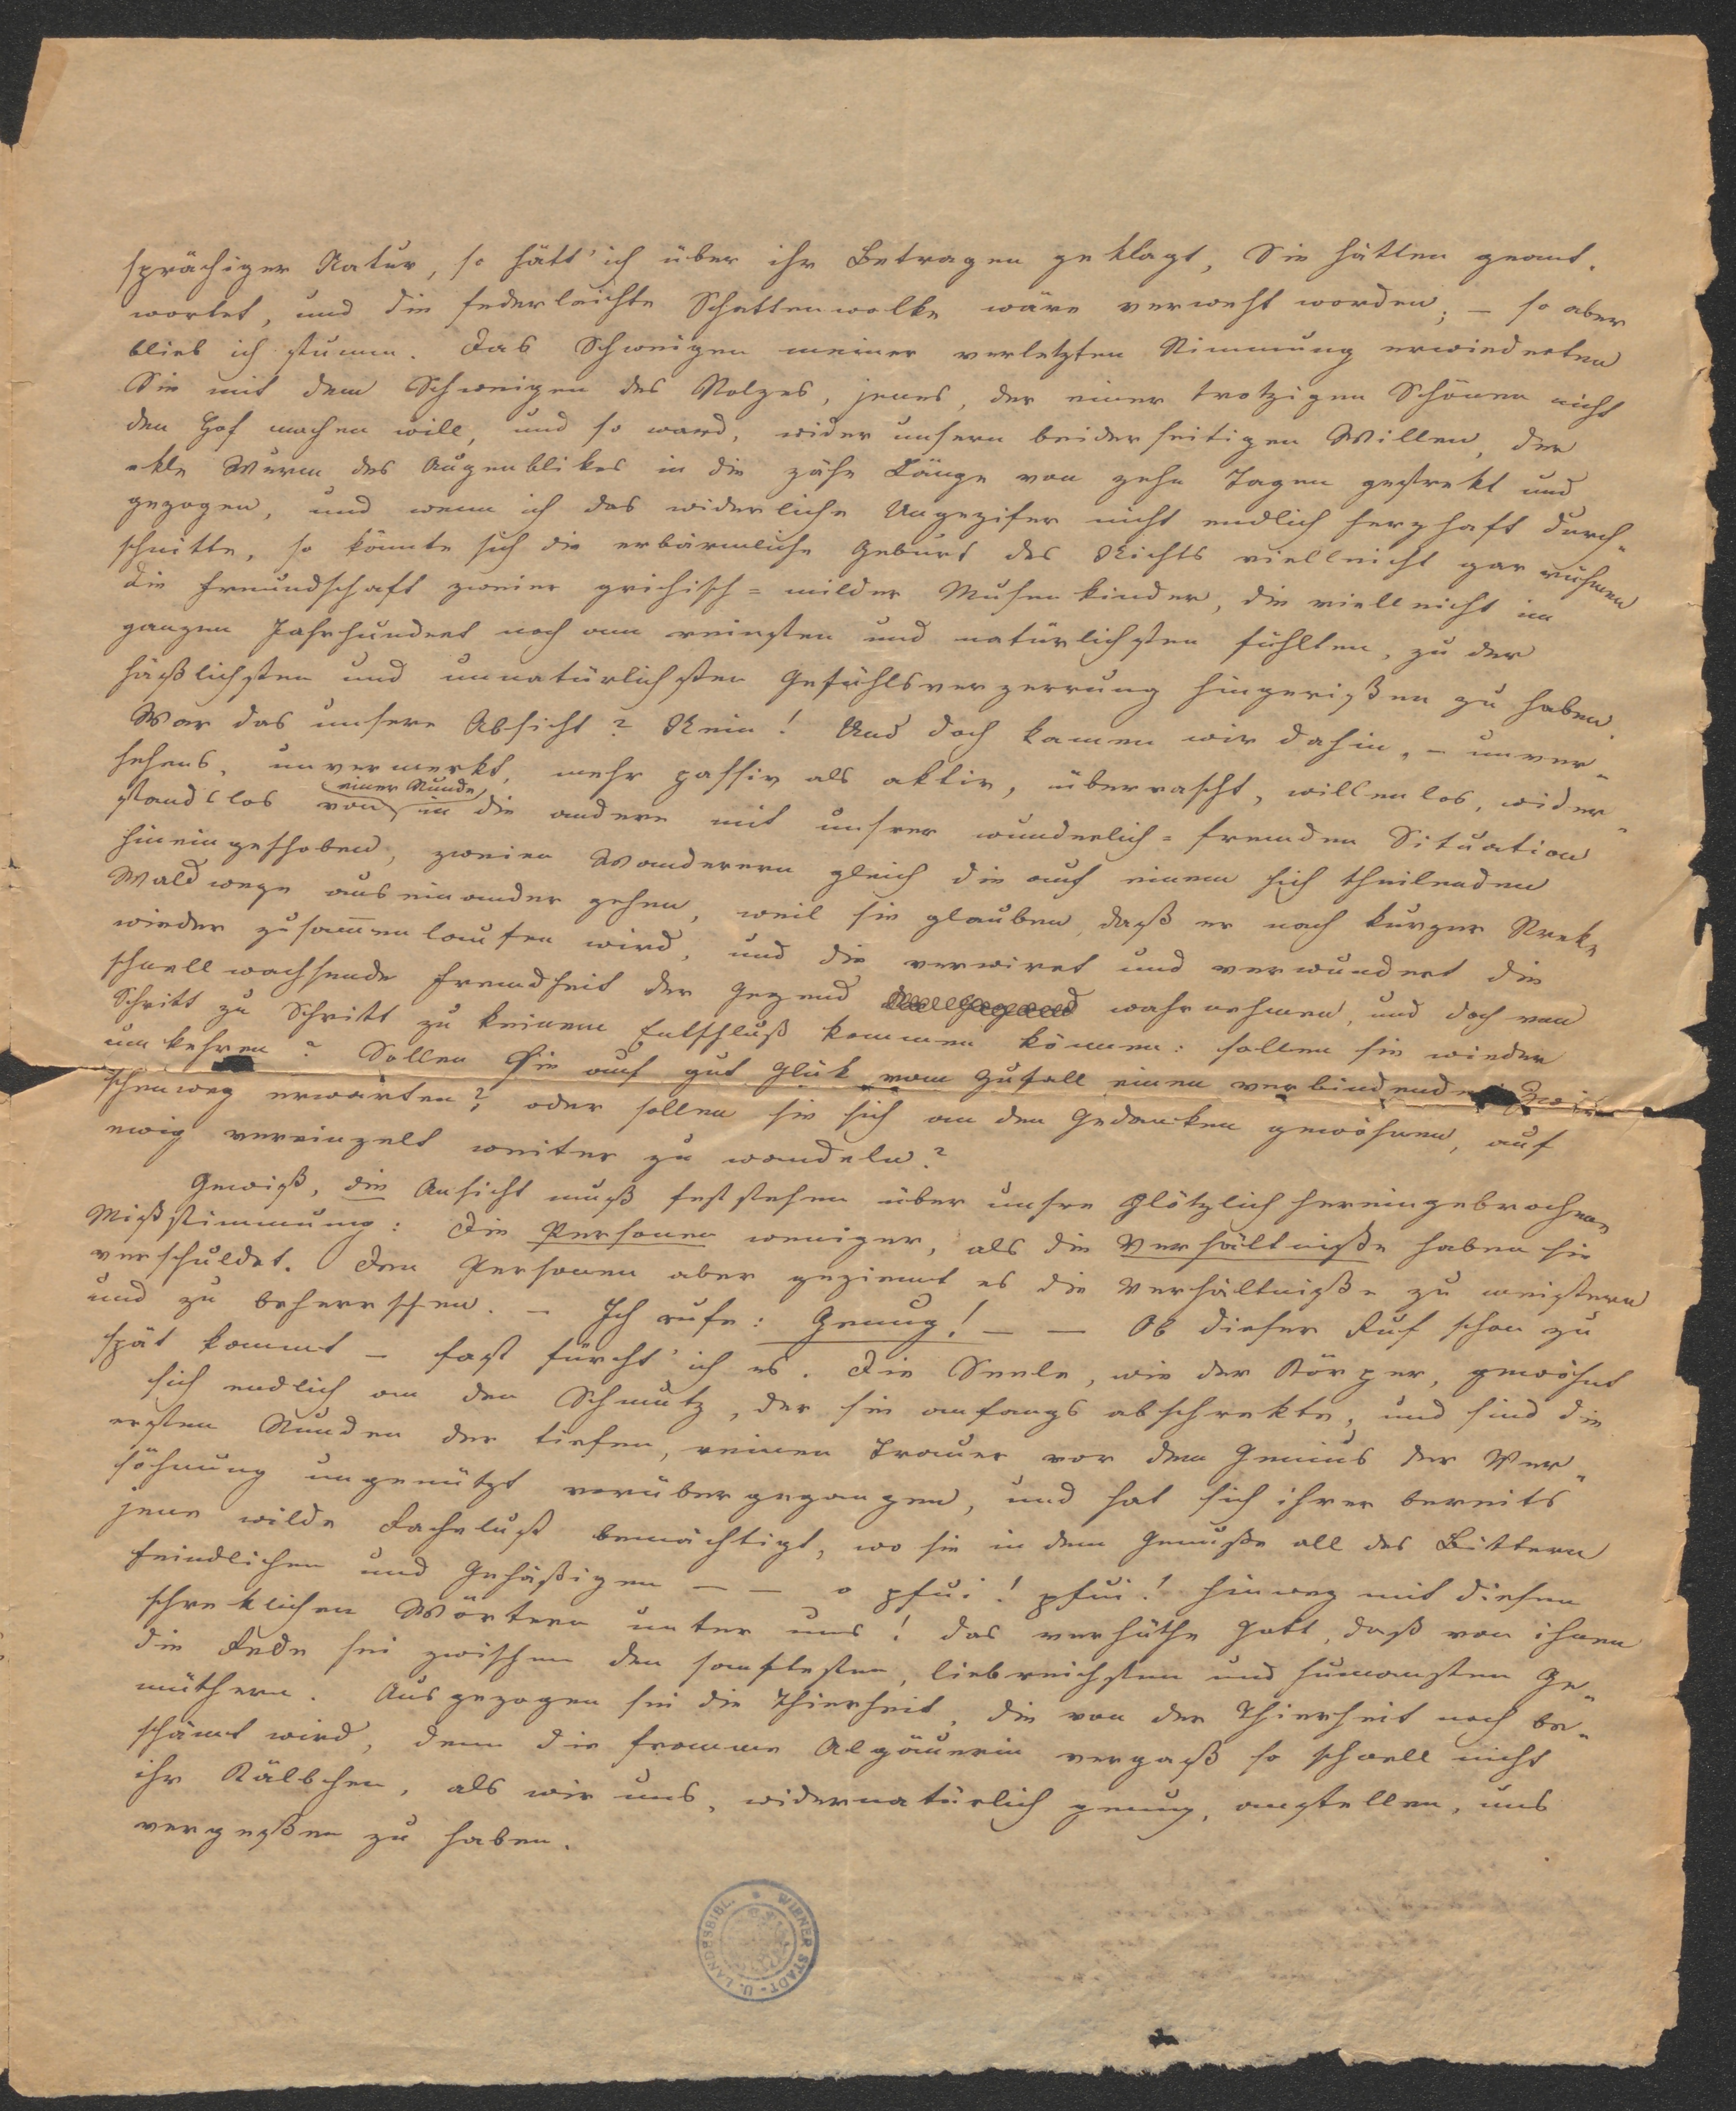 sprächiger Natur, so hätt' ich über ihr Betragen geklagt, Sie hätten geant-
wortet, und die federleichte Schattenwolke wäre verweht worden; – so aber
blieb ich stumm. Das Schweigen meiner verletzten Stimmung erwiederten
Sie mit dem Schweigen des Stolzes, jenes, der einer trotzigen Schönen nicht
den Hof machen will, und so ward, wider unsern beiderseitigen Willen, der
ekle Wurm des Augenblikes in die zähe Länge von zehn Tagen gestrekt und
gezogen, und wenn ich das widerliche Ungezifer nicht endlich herzhaft durch-
schnitte, so könnte sich die erbärmliche Geburt des Nichts vielleicht gar rühmen
die Freundschaft zweier grichisch-milder Musenkinder, die vielleicht im
ganzen Jahrhundert noch am reinsten und natürlichsten fühlten, zu der
häßlichsten und unnatürlichsten Gefühlsverzerrung hingerißen zu haben.
War das unsere Absicht? Nein! Und doch kamen wir dahin, – unver-
sehens, unvermerkt, mehr passiv als aktiv, überrascht, willenlos, wider-
standslos von einer Stunde in die andere mit unsrer wunderlich-fremden Situation
hineingeschoben, zweien Wanderern gleich die auf einem sich theilenden
Waldwege auseinander gehen, weil sie glauben, daß er nach kurzer Streke
wieder zusam̅enlaufen wird, und die verwirrt und verwundert die
schnell wachsende Fremdheit der Gegend der Gegend wahrnehmen, und doch von
Schritt zu Schritt zu keinem Entschluß kommen können: sollen sie wieder
umkehren? Sollen sie auf gut Glük vom Zufall einen verbindenden Zwi-
schenweg erwarten? oder sollen sie sich an den Gedanken gewöhnen, auf
ewig vereinzelt weiter zu wandeln?
Gewiß, die Ansicht muß feststehen über unsre plötzlich hereingebrochene
Mißstimmung: Die Personen weniger, als die Verhältniße haben sie
verschuldet. Den Personen aber geziemt es die Verhältniße zu meistern
und zu beherrschen. – Ich rufe: Genug! – – Ob dieser Ruf schon zu
spät kommt – fast fürcht' ich es. Die Seele, wie der Körper, gewöhnt
sich endlich an den Schmutz, der sie anfangs abschrekte, und sind die
ersten Stunden der tiefen, reinen Trauer vor dem Genius der Ver-
söhnung ungenützt vorübergegangen, und hat sich ihrer bereits
jene wilde Rachelust bemächtigt, wo sie in dem Genuße all des Bittern
feindlichen und Gehäßigen – – o pfui! pfui! hinweg mit diesen
schreklichen Wörtern unter uns! das verhüthe Gott, daß von ihnen
die Rede sei zwischen den sanftesten, liebreichsten und humansten Ge-
müthern. Ausgezogen sei die Thierheit, die von der Thierheit noch be-
schämt wird, denn die fromme Algäuerin vergaß so schnell nicht
ihr Kälbchen, als wir uns, widernatürlich genug, anstellen, uns
vergeßen zu haben.
WIENER STADT- U. LANDESBIBL.